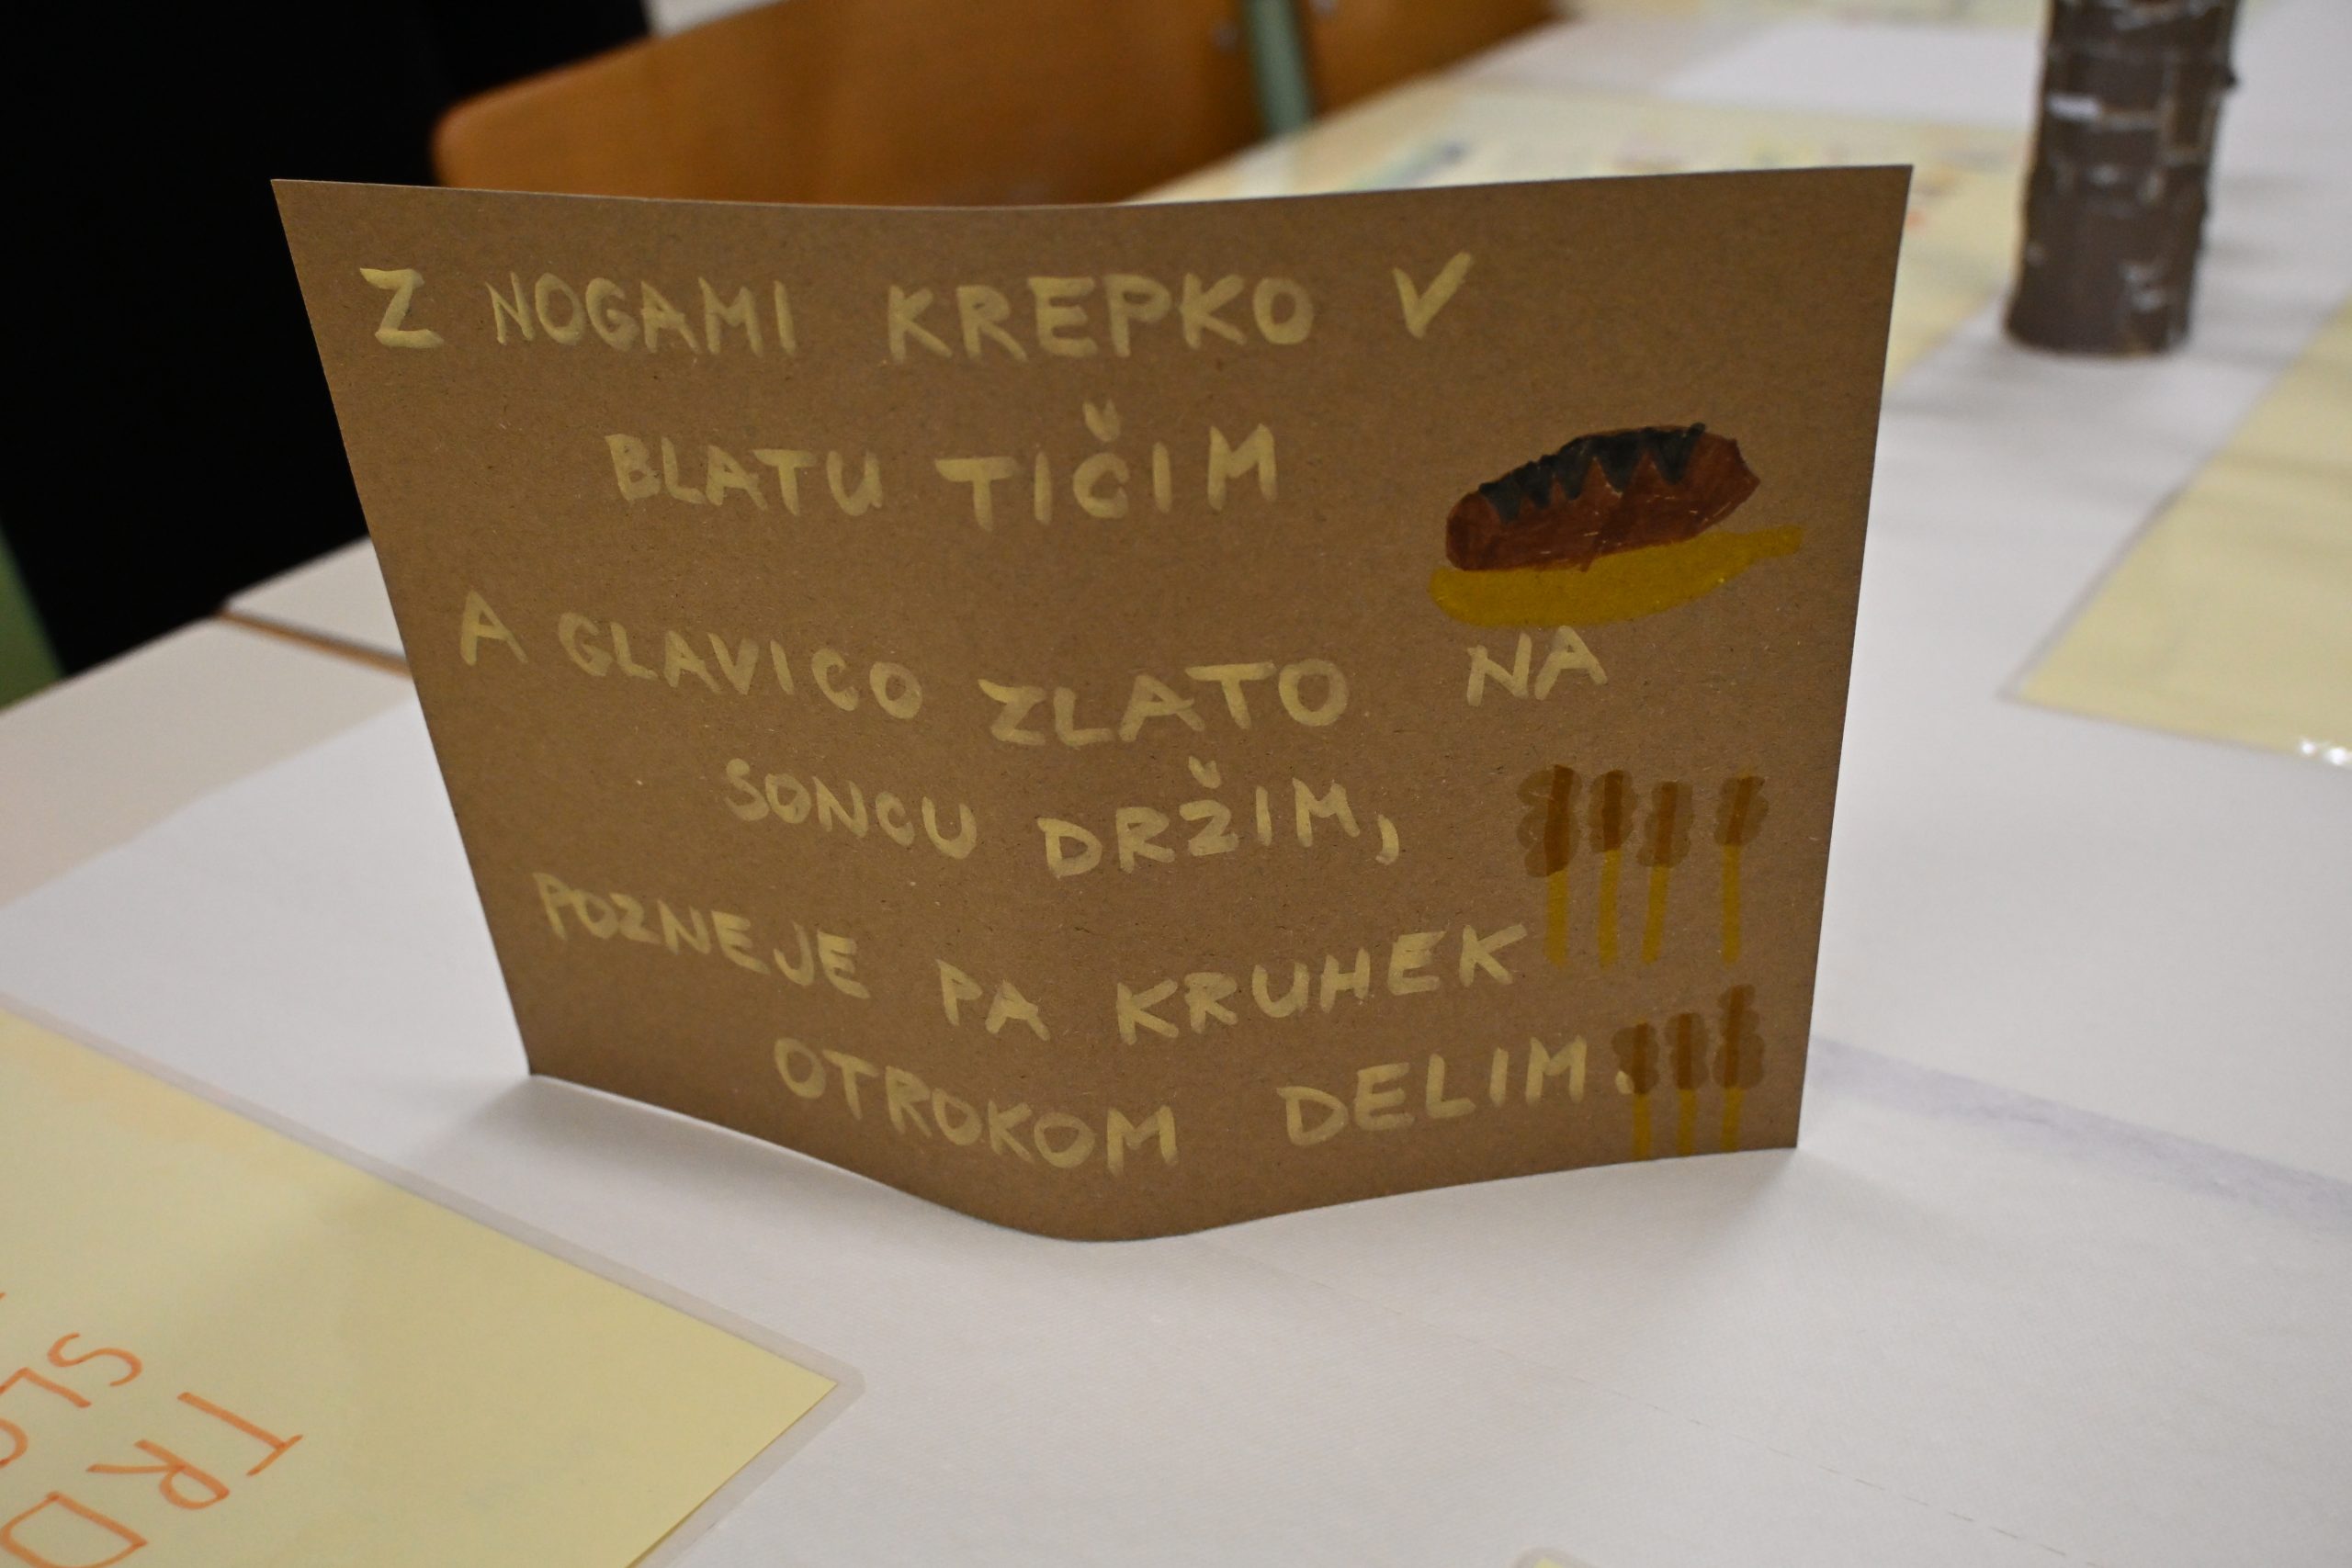 Z NOGAMI KREPKO V
BLATU TIČIM
A GLAVICO ZLATO NA
SONCU DRŽIM,
POZNEJE PA KRUHEK
OTROKOM DELIM.
TRD